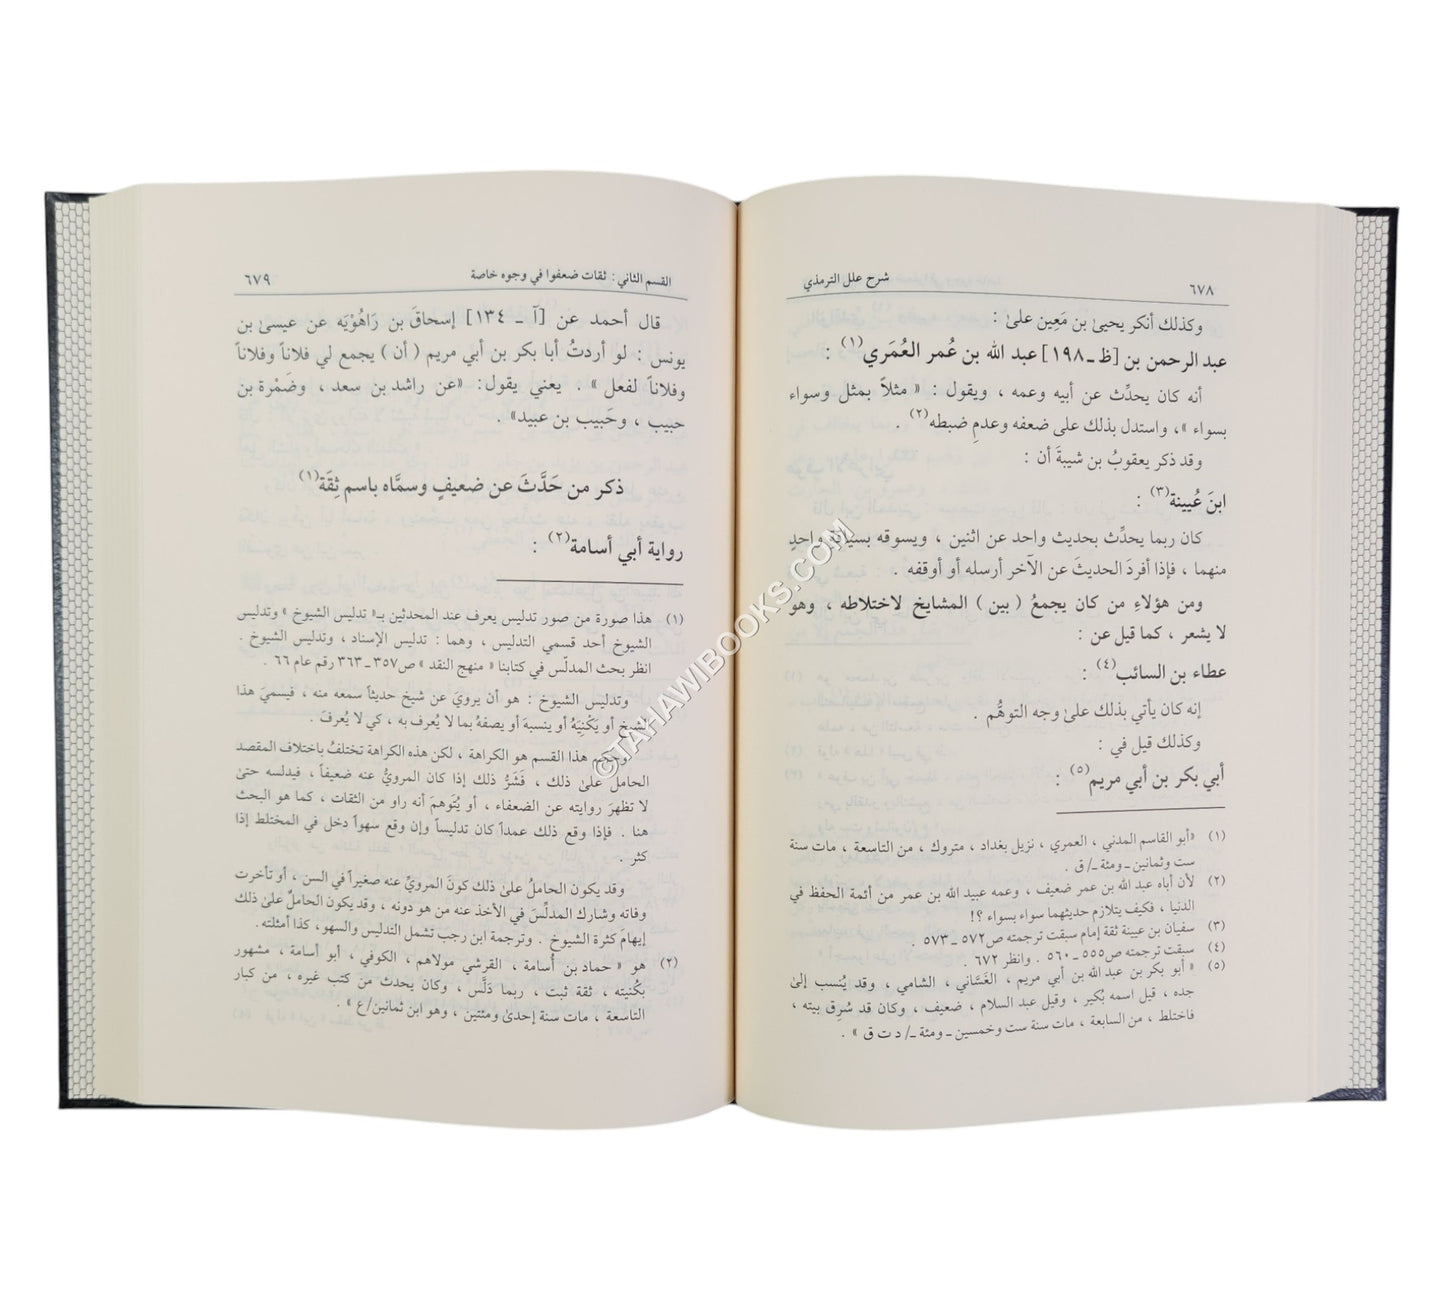 ٦٧٨
شرح علل الترمذي
وكذلك أنكر يحيىٰ بن مَعِين علىٰ :
عبد الرحمن بن [ظ ـ ١٩٨] عبد الله بن عُمر العُمَري(١) :
أنه كان يحدِّث عن أبيه وعمه ، ويقول : « مثلاً بمثل وسواء
بسواء »، واستدل بذلك على ضعفه وعدمِ ضبطه(٢) .
وقد ذكر يعقوبُ بن شيبةَ أن :
ابنَ عُيينة(٣) :
كان ربما يحدِّث بحديث واحد عن اثنين ، ويسوقه بسياقة واحدٍ
منهما ، فإذا أفردَ الحديثَ عن الآخر أرسله أو أوقفه .
ومن هؤلاءِ من كان يجمعُ ( بين ) المشايخ لاختلاطه ، وهو
لا يشعر ، كما قيل عن :
عطاء بن السائب(٤) :
إنه كان يأتي بذلك علىٰ وجه التوهُّم .
وكذلك قيل في :
أبي بكر بن أبي مريم(٥) :
(١) «أبو القاسم المدني ، العمري ، نزيل بغداد ، متروك ، من التاسعة ، مات سنة
ست وثمانين ـ ومئة ـ/ ق .
(٢) لأن أباه عبد الله بن عمر ضعيف ، وعمه عبيد الله بن عمر من أئمة الحفظ في
الدنيا ، فكيف يتلازم حديثهما سواء بسواء ؟!
(٣) سفيان بن عيينة ثقة إمام سبقت ترجمته ص٥٧٢ ـ ٥٧٣ .
(٤) سبقت ترجمته ص٥٥٥ ـ ٥٦٠ . وانظر ٦٧٢ .
(٥) « أبو بكر بن عبد الله بن أبي مريم ، الغَسَّاني ، الشامي ، وقد يُنسب إلىٰ
جده ، قيل اسمه بُكير ، وقيل عبد السلام ، ضعيف ، وكان قد سُرِق بيته ،
فاختلط ، من السابعة ، مات سنة ست وخمسين ـ ومئة ـ/ د ت ق » .
القسم الثاني : ثقات ضعفوا في وجوه خاصة
٦٧٩
قال أحمد عن [آ ـ ١٣٤] إسحاقَ بن رَاهُوْيَه عن عيسىٰ بن
يونس : لو أردتُ أبا بكر بن أبي مريم ( أن ) يجمع لي فلاناً وفلاناً
وفلاناً لفعل » . يعني يقول: «عن راشد بن سعد ، وضَمْرة بن
حبيب ، وحَبيب بن عبيد» .
ذكر من حَدَّثَ عن ضعيفٍ وسمَّاه باسم ثِقَة(١)
رواية أبي أسامة(٢) :
(١) هذا صورة من صور تدليس يعرف عند المحدثين بـ« تدليس الشيوخ » وتدليس
الشيوخ أحد قسمي التدليس ، وهما : تدليس الإسناد ، وتدليس الشيوخ .
انظر بحث المدلّس في كتابنا « منهج النقد » ص٣٥٧ ـ ٣٦٣ رقم عام ٦٦ .
وتدليس الشيوخ : هو أن يرويَ عن شيخ حديثاً سمعه منه ، فيسميَ هذا
الشيخ أو يَكْنِيَهُ أو ينسبهَ أو يصفهُ بما لا يُعرف به ، كي لا يُعرفَ .
وحكم هذا القسم هو الكراهة ، لكن هذه الكراهة تختلفُ باختلاف المقصد
الحامل علىٰ ذلك ، فَشَرُّ ذلك إذا كان المرويُّ عنه ضعيفاً ، فيدلسه حتىٰ
لا تظهرَ روايته عن الضعفاء ، أو يُتَوهمَ أنه راو من الثقات ، كما هو البحث
هنا . فإذا وقع ذلك عمداً كان تدليساً وإن وقع سهواً دخل في المختلط إذا
كثر .
وقد يكون الحاملُ علىٰ ذلك كونَ المرويِّ عنه صغيراً في السن ، أو تأخرت
وفاته وشارك المدلِّسَ في الأخذ عنه من هو دونه ، وقد يكون الحاملُ علىٰ ذلك
إيهامَ كثرة الشيوخ . وترجمة ابن رجب تشمل التدليس والسهو، كذا أمثلته .
(٢) هو « حماد بن أسامة ، القرشي مولاهم ، الكوفي ، أبو أسامة ، مشهور
بكُنيته ، ثقة ثبت ، ربما دَلَّس ، وكان يحدث من كتب غيره ، من كبار
التاسعة ، مات سنة إحدىٰ ومئتين ، وهو ابن ثمانين/ع » .
©TAHAWIBOOKS.COM